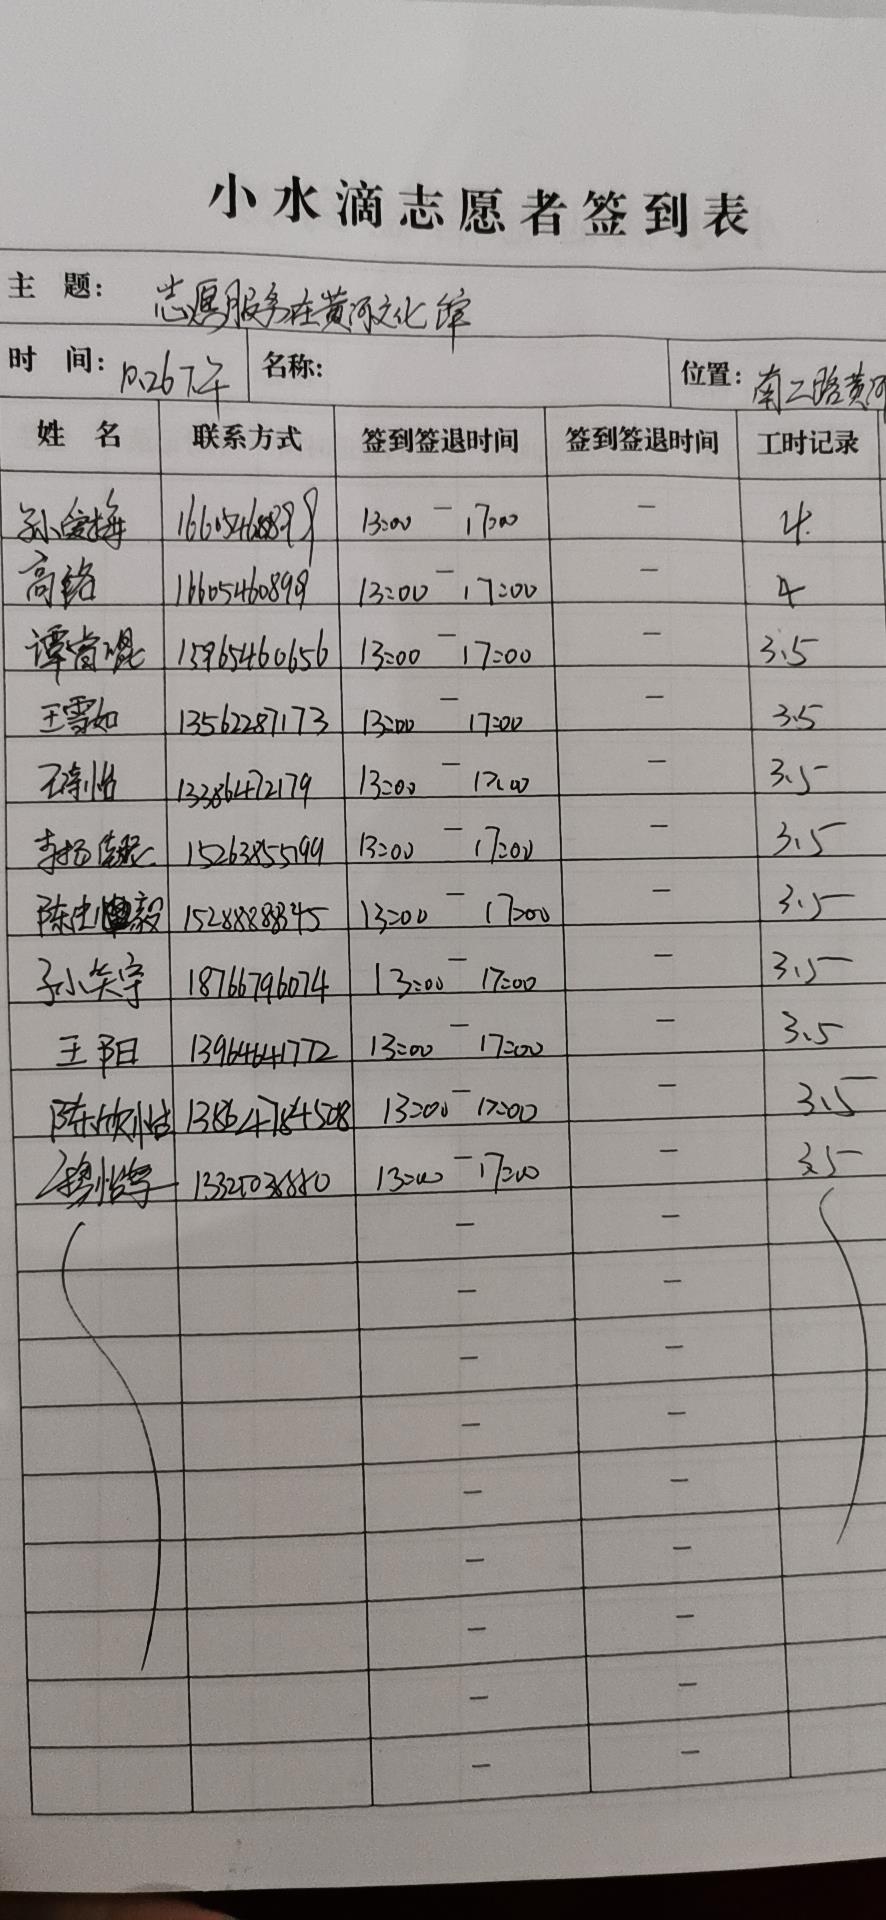 小水滴志愿者签到表
主 题： 志愿服务在黄河文化馆
时 间： 10.26下午 名称： 位置： 南二路黄河
姓 名 联系方式 签到签退时间 签到签退时间 工时记录
13:00 — 17:00 — 4
高络 16605460899 13:00 — 17:00 — 4
谭肯琨 15965460656 13:00 — 17:00 — 3.5
王雪如 13562287173 13:00 — 17:00 — 3.5
石诗怡 13386472179 13:00 — 17:00 — 3.5
15263855199 13:00 — 17:00 — 3.5
15288888345 13:00 — 17:00 — 3.5
孙笑宇 18766796074 13:00 — 17:00 — 3.5
王阳 13964641772 13:00 — 17:00 — 3.5
陈欣怡 13864784508 13:00 — 17:00 — 3.5
13:00 — 17:00 — 3.5
— —
— —
— —
— —
— —
— —
— —
— —
— —